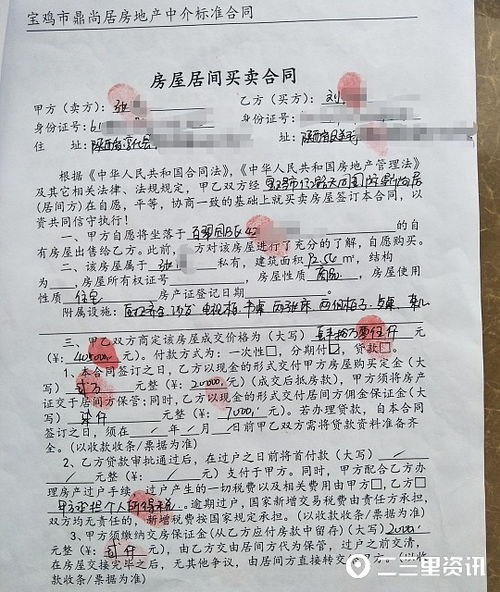 宝鸡市鼎尚居房地产中介标准合同
房屋居间买卖合同
甲方（卖方）：张 乙方（买方）：刘
身份证号：61 身份证号：
住 址： 址：
根据《中华人民共和国合同法》，《中华人民共和国房地产管理法》
及其它相关法律、法规规定，甲乙双方经
(居间方)在自愿，平等，协商一致的基础上就买卖房屋签订本合同，以
资共同信守执行！
一、甲方自愿将坐落于 的自
有房屋出售给乙方。此前， 方对该房屋进行了充分的了解，自愿购买。
二、该房屋属于 张 私有，建筑面积 ㎡，结构
为 ，房屋所有权证号 ，房屋性质 ，房屋使用
性质 住宅 房产证登记日期 。
附属设施：
三、甲乙双方商定该房屋成交价格为（大写） 元
（¥： ）。付款方式为：一次性□，分期付□，贷款□。
1、本合同签订之日，乙方以现金的形式交付甲方房屋购买定金（大
写） 贰万 元整（¥： 20000 元）（成交后抵房款），甲方须将房产
证交于居间方保管；同时，乙方以现金的形式交付居间方佣金保证金（大
写） 柒仟 元整（¥： 7000 元）。若办理贷款，自本合同
签订之日，须在 / 年 / 月 日前甲乙双方需将贷款资料准备齐
全。（以收款收条/票据为准）
2、乙方贷款审批通过后，在过户之日前将首付款（大写） /
元整（¥： / 元）支付于甲方。同时，甲方配合乙方办
理房产过户手续，过户产生的一切税费以及相关费用由甲方□，乙方□
甲方承担个人所得税 。逾期过户，国家新增交易税费由责任方承担，
双方均无责任的，新增税费按国家规定承担。（以收款收条/票据为准）
3、甲方须缴纳交房保证金（从乙方应付房款中留存）（大写） 2000
元整（¥： 贰仟 元），由乙方交由居间方代为保管，过户之前交清，
在房屋交接完毕之后，无其他争议，由居间方直接转交 甲方。（以收
款收条/票据为准）
二三里资讯